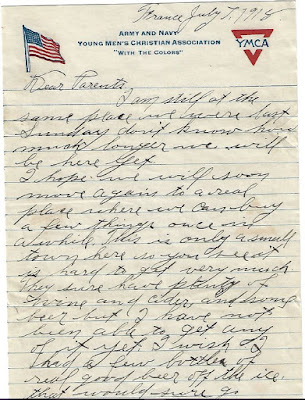 France July 7. 1918
ARMY AND NAVY
YOUNG MEN'S CHRISTIAN ASSOCIATION
"WITH THE COLORS"
YMCA
Dear Parents
I am still at the
same place we were last
Sunday don't know how
much longer we will
be here yet
I hope we will soon
move again to a real
place where we can buy
a few things once in
a while. This is only a small
town here so you see it
is hard to get very much
They sure have plenty of
wine and cider, and some
beer but I have not
been able to get any
of it yet. I wish I
had a few bottles of
real good beer off the ice.
that would sure go